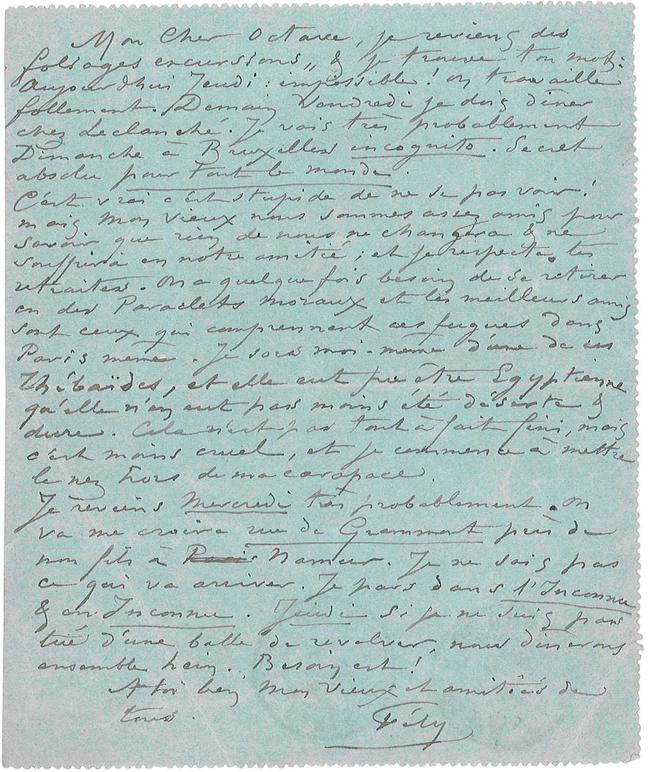 Mon Cher Octave, je reviens des
folsages excursions,, & je trouve ton mot.
Aujourd'hui Jeudi : impossible ! on travaille
follement. Demain Vendredi je dois dîner
chez Leclanché. Je vais très probablement
Dimanche à Bruxelles incognito. Secret
absolu pour tout le monde.
C'est vrai c'est stupide de ne se pas voir !
mais mon vieux nous sommes assez amis pour
savoir que rien de nous ne changera & ne
souffrira en notre amitié ; et je respecte tes
retraites. On a quelque fois besoin de se retirer
en des Paraclets moraux et les meilleurs amis
sont ceux qui comprennent ces fugues dans
Paris même. Je sors moi-même d'une de ces
Thébaïdes, et elle eut pu être Egyptienne
qu'elle n'en eut pas moins été déserte &
dure. Cela n'est pas tout à fait fini, mais
c'est moins cruel, et je commence à mettre
le nez hors de ma carapace.
Je reviens Mercredi très probablement. On
va me croire rue de Grammont près de
mon fils à Namur. Je ne sais pas
ce qui va arriver. Je pars dans l'Inconnu
& en Inconnu. Jeudi si je ne suis pas
tué d'une balle de revolver, nous dinerons
ensemble hein. Besoin est !
A toi ben mon vieux et amitiés de
tous. Fély